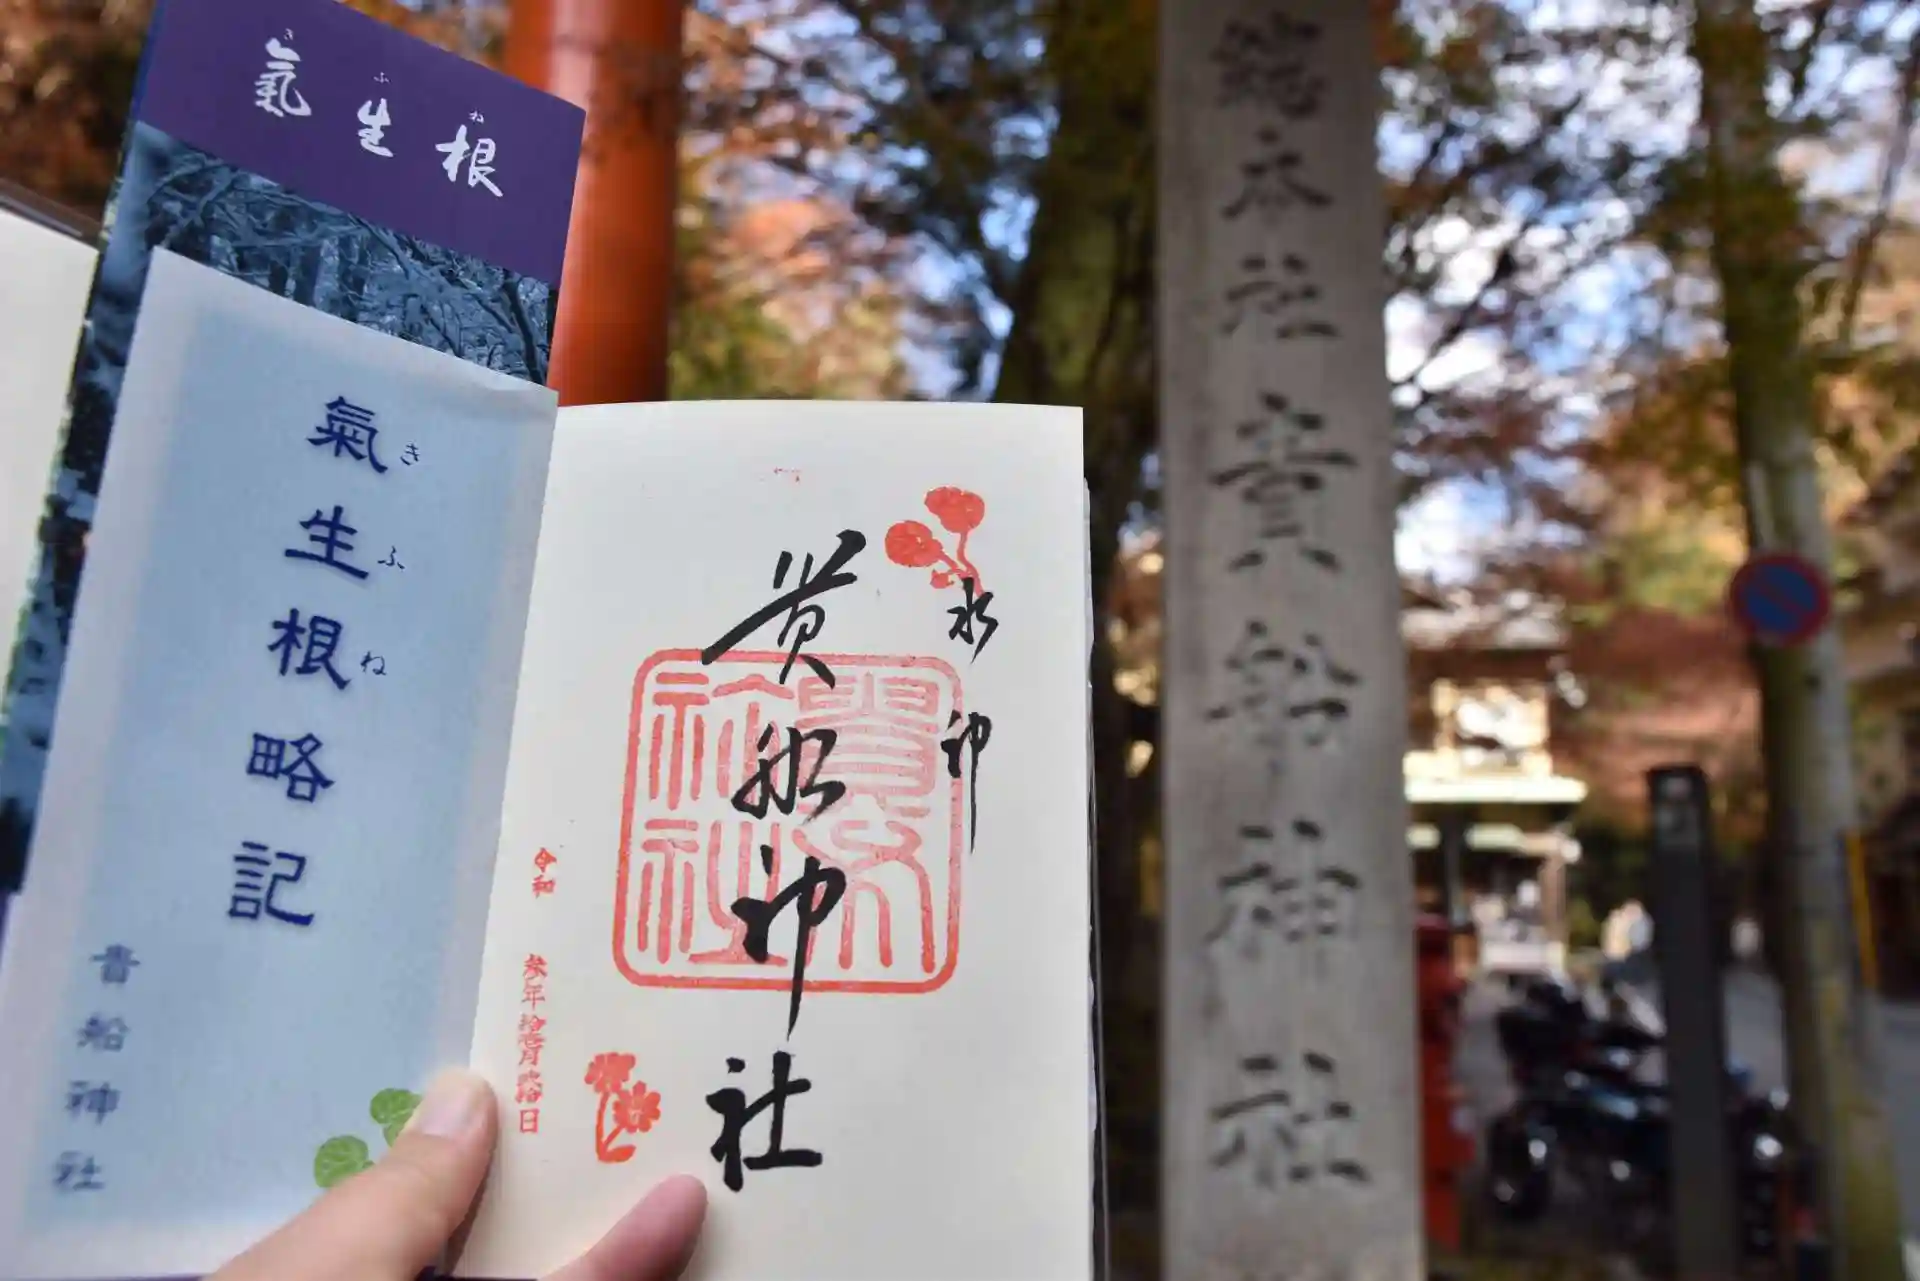 氣生根
き ふ ね
氣生根略記
きふね
貴船神社
水神
貴船神社
貴船神社
令和 参年拾壱月弐拾日
総本社貴船神社